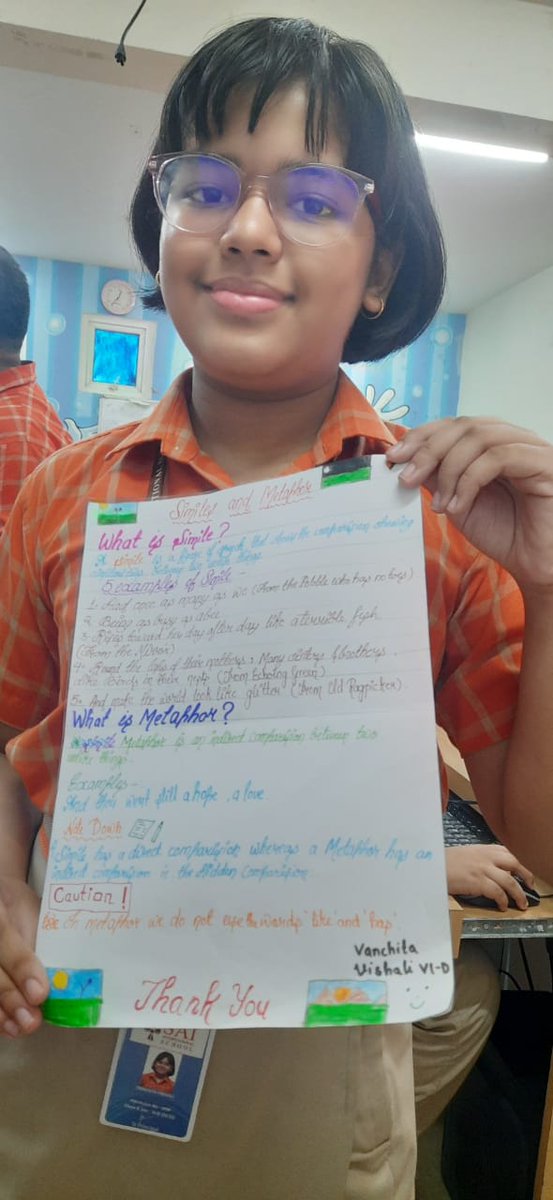 Similes and Metaphor
What is Simile?
A simile is a figure of speech that shows the comparison showing
similarities between two unlike things.
5 examples of Simile -
1. Had once as many as we (From the Pobble who has no toes)
2. Being as busy as a bee.
3. Rises toward her day after day like a terrible fish
(From the Mirror)
4. Round the laps of their mothers, Many sisters & brothers,
Like Birds in their nest (From Echoing Green)
5. And make the world look like glitter (From Old Ragpicker).
What is Metaphor?
Metaphor is an indirect comparision between two
unlike things.
Examples -
And they went still a hope, a love.
Note Down
Simile has a direct comparision whereas a Metaphor has an
indirect comparision ie the Hidden Comparision
Caution!
In metaphor we do not use the words 'like' and 'as'.
Vanchita
Vishali VI-D
Thank You
SAI
INTERNATIONAL
SCHOOL